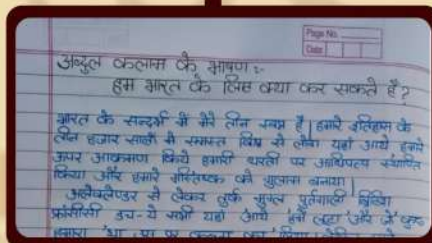 Page No.
Date
अब्दुल कलाम के भाषण :-
हम भारत के लिए क्या कर सकते है?
भारत के सन्दर्भ में मेरे तीन स्वप्न है | हमारे इतिहास के
तीन हजार सालों में समस्त विश्व से लोग यहाँ आये हमारे
ऊपर आक्रमण किये हमारी धरती पर आधिपत्य स्थापित
किया और हमारे मस्तिष्क को गुलाम बनाया |
अलेक्जेण्डर से लेकर तुर्क मुगल पुर्तगाली ब्रिटिश
फ्रांसीसी डच - ये सभी यहाँ आये हमें लूटा और जो कुछ
हमारा था